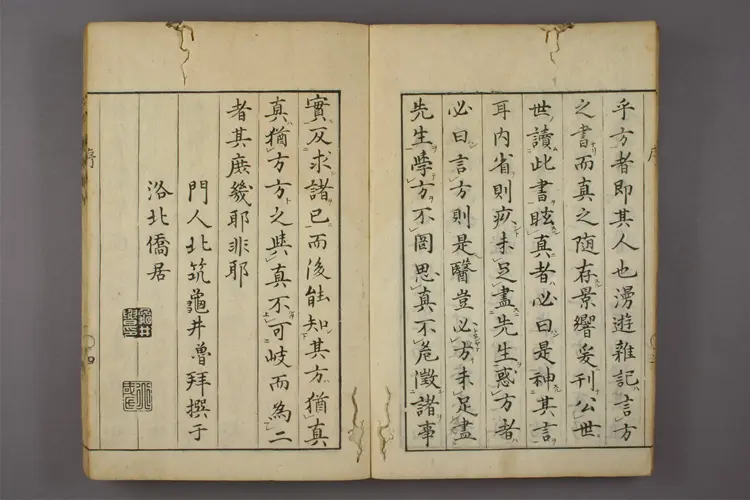 乎方者即其人也漫遊雜記言方
之書而真之随存景響爰刊公世
世讀此書眩真者必曰是神其言
耳内省則疚未足盡先生惑方者
必曰言方則是醫豈必方未足盡
先生學方不罔思真不危徵諸事
實反求諸己而後能知其方猶真
真猶方方之與真不可岐而為二
者其庶幾耶非耶
門人北筑龜井魯拜撰于
洛北僑居
序
序
四